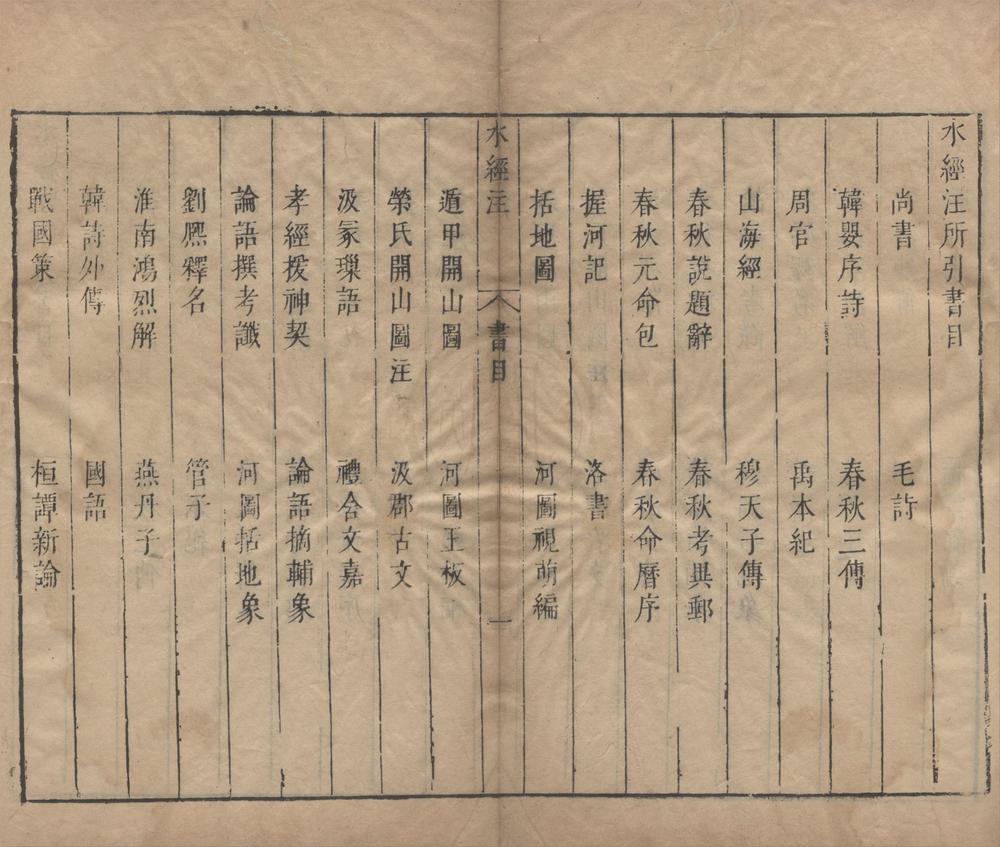 水經注所引書目
尚書　毛詩
韓嬰序詩　春秋三傳
周官　禹本紀
山海經　穆天子傳
春秋說題辭　春秋考異郵
春秋元命包　春秋命曆序
握河記　洛書
括地圖　河圖視萌編
水經注　書目　一
遁甲開山圖　河圖玉板
榮氏開山圖注　汲郡古文
汲冢瑣語　禮含文嘉
孝經援神契　論語摘輔象
論語撰考讖　河圖括地象
劉熈釋名　管子
淮南鴻烈解　燕丹子
韓詩外傳　國語
戰國策　桓譚新論